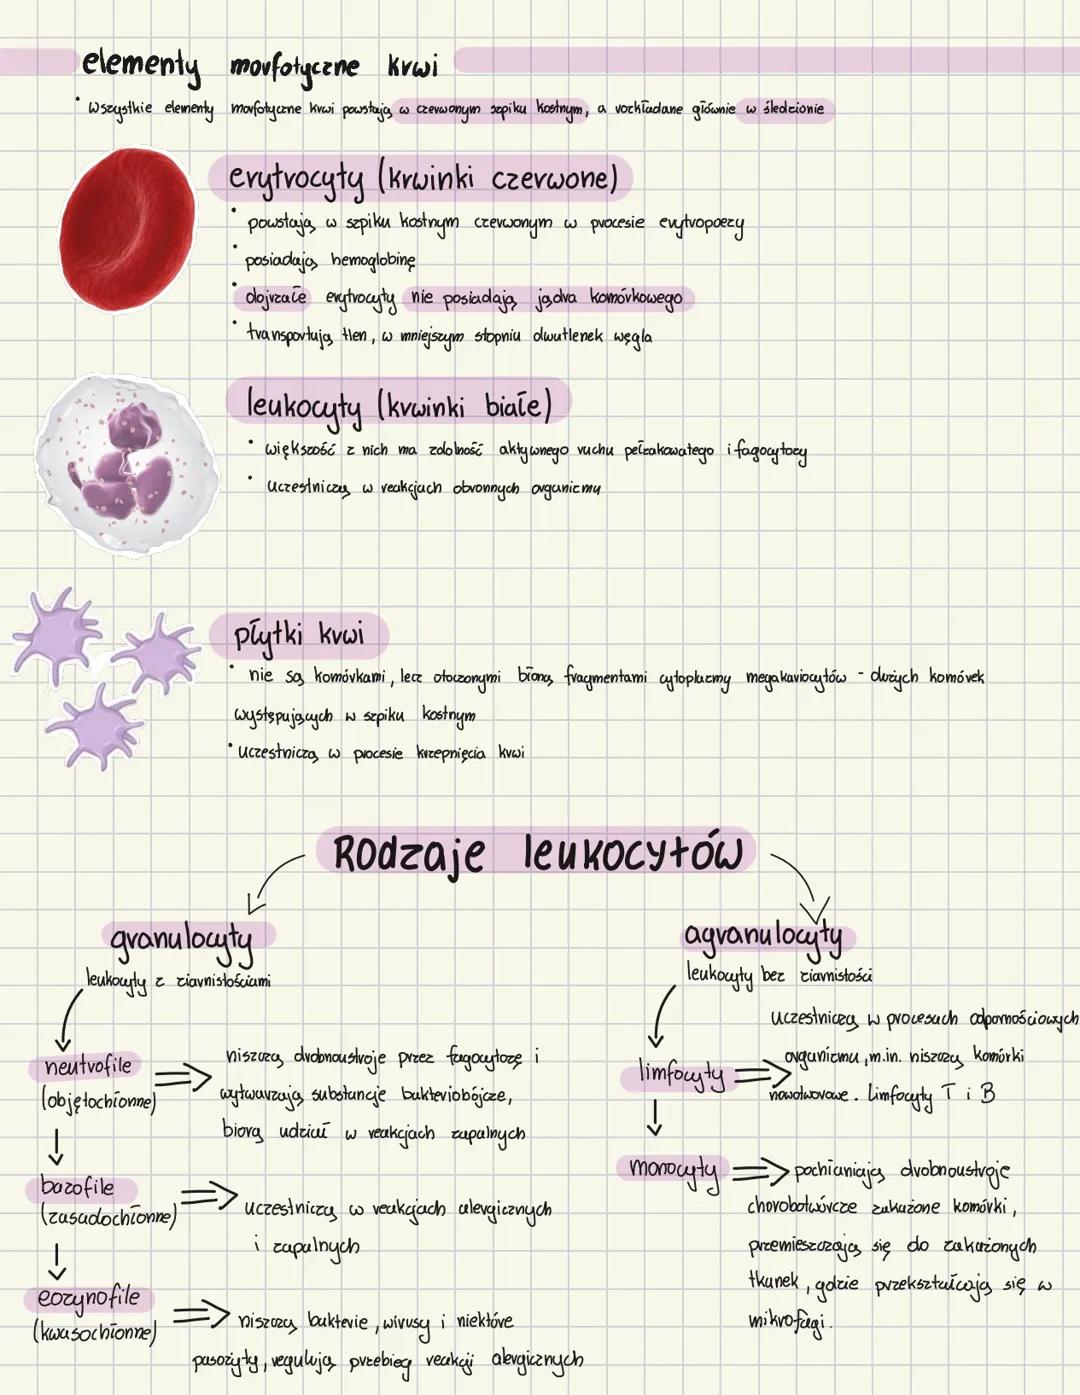 elementy morfotyczne krwi
• Wszystkie elementy morfotyczne krwi powstają w czerwonym szpiku kostnym, a rozkładane głównie w śledzionie
erytrocyty (krwinki czerwone)
• powstają w szpiku kostnym czerwonym w procesie erytropoezy
• posiadają hemoglobinę
• dojrzałe erytrocyty nie posiadają jądra komórkowego
• transportują tlen, w mniejszym stopniu dwutlenek węgla
leukocyty (krwinki białe)
• większość z nich ma zdolność aktywnego ruchu pełzakowatego i fagocytozy
• uczestniczą w reakcjach obronnych organizmu
płytki krwi
• nie są komórkami, lecz otoczonymi błoną fragmentami cytoplazmy megakariocytów - dużych komórek
występujących w szpiku kostnym
• uczestniczą w procesie krzepnięcia krwi
Rodzaje leukocytów
granulocyty
leukocyty z ziarnistościami
neutrofile
(objętochłonne)
niszczą drobnoustroje przez fagocytozę i
wytwarzają substancje bakteriobójcze,
biorą udział w reakcjach zapalnych
bazofile
(zasadochłonne)
uczestniczą w reakcjach alergicznych
i zapalnych
eozynofile
(kwasochłonne)
niszczą bakterie, wirusy i niektóre
pasożyty, regulują przebieg reakcji alergicznych
agranulocyty
leukocyty bez ziarnistości
limfocyty
uczestniczą w procesach odpornościowych
organizmu, m.in. niszczą komórki
nowotworowe. Limfocyty T i B
monocyty
pochłaniają drobnoustroje
chorobotwórcze zakażone komórki,
przemieszczają się do zakażonych
tkanek, gdzie przekształcają się w
mikrofagi.